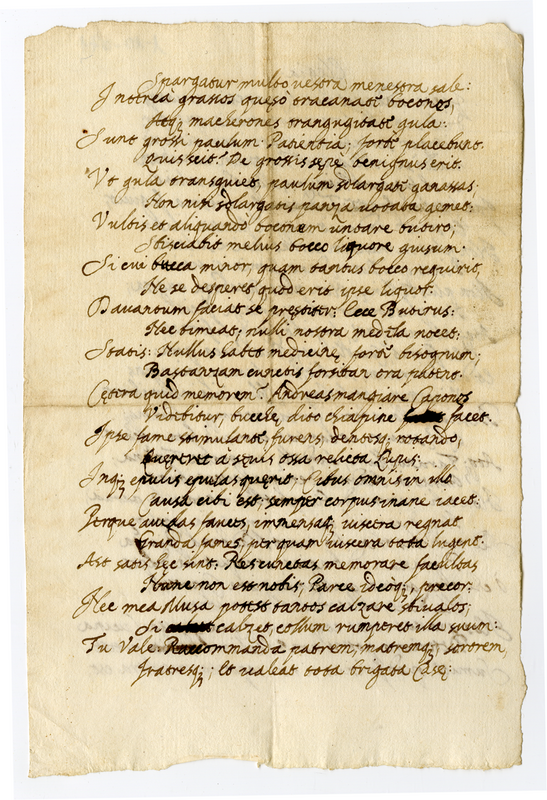 Spargatur multo vestra menestra sale:
Intrea grassos quęso tracanate bocones,
Atq; macherones trangugitate gula.
Sunt grossi paulum. Patientia; forte placebunt.
Quis scit? De grossis sępe benignus erit.
Ut gula transquiet, paulum slargate ganassas.
Non nisi slargatis panza uotata gemet.
Vultis et aliquando boconem untare butiro;
Sbisciabit melius bocco liquore giusum.
Si cui bucca minor, quam tantus bocco requirit,
Ne se desperet quod erit ipse liquor.
Davantum faciat se prestiter: Ecce Butirus:
Nec timeat; nulli nostra medela nocet.
Statis: Nullus habet medicinę forte bisognum;
Bastanzam cunctis forsitan ora patent.
Cętera quid memorem? Andreas mangiare Capones
Videbitur, bucche, dito chiapine facet.
Ipse fame stimulante, furens, dentesq; rotando,
quereret à scuis ossa relicta Lupis.
Inq; epulis epulas querit: Cibus omnis in illo
Causa cibi est; semper corpus inane iacet:
Perque avidas fauces, immensaq; viscera regnat
Granda fames, per quam viscera tota lugent.
Ast satis hęc sint: Res cunctas memorare facultas
Nunc non est nobis, Parce ideoq;, precor.
Nec mea Musa potest tantos calzare stivalos;
Si calzet, collum rumperet illa suum.
Tu Vale. Raccommanda patrem, matremq;, sororem,
Fratresq;; Et valeat tota brigata Casę: